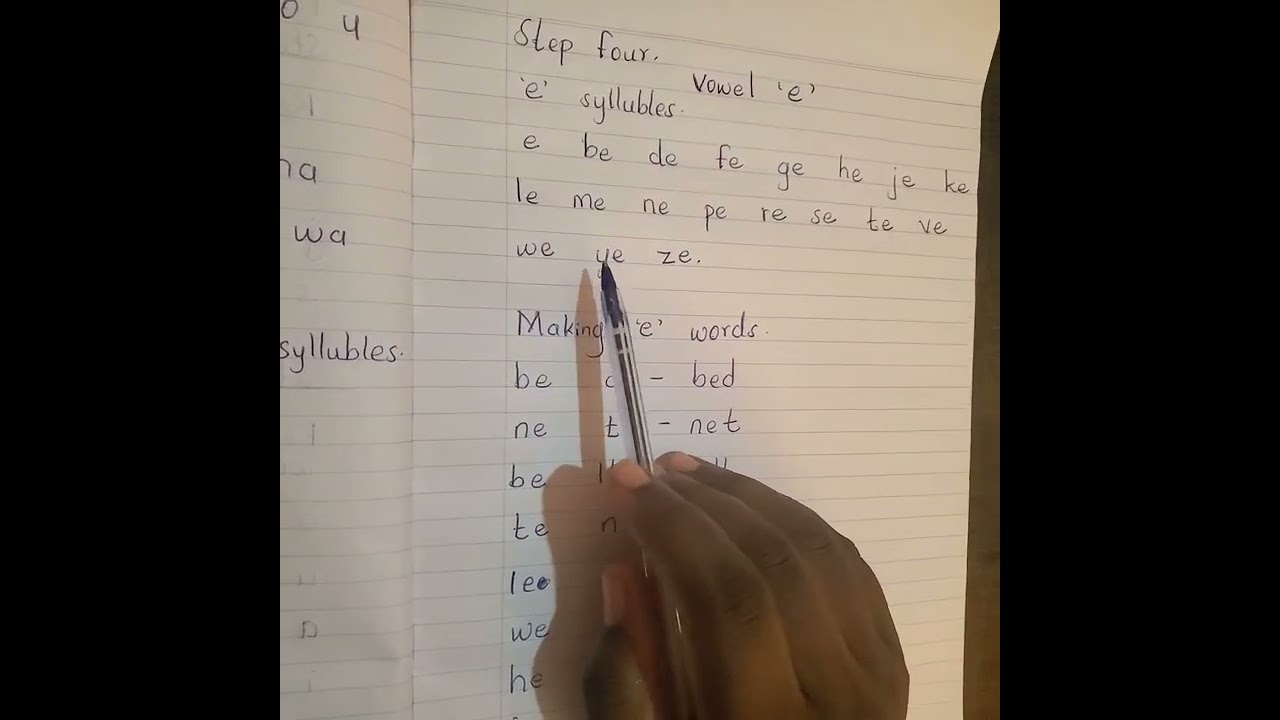 o u
na
wa
syllubles.
Step four.
Vowel 'e'
'e' syllubles.
e be de fe ge he je ke
le me ne pe re se te ve
we ye ze.
Making 'e' words.
be d - bed
ne t - net
be ll
te n
le
we
he